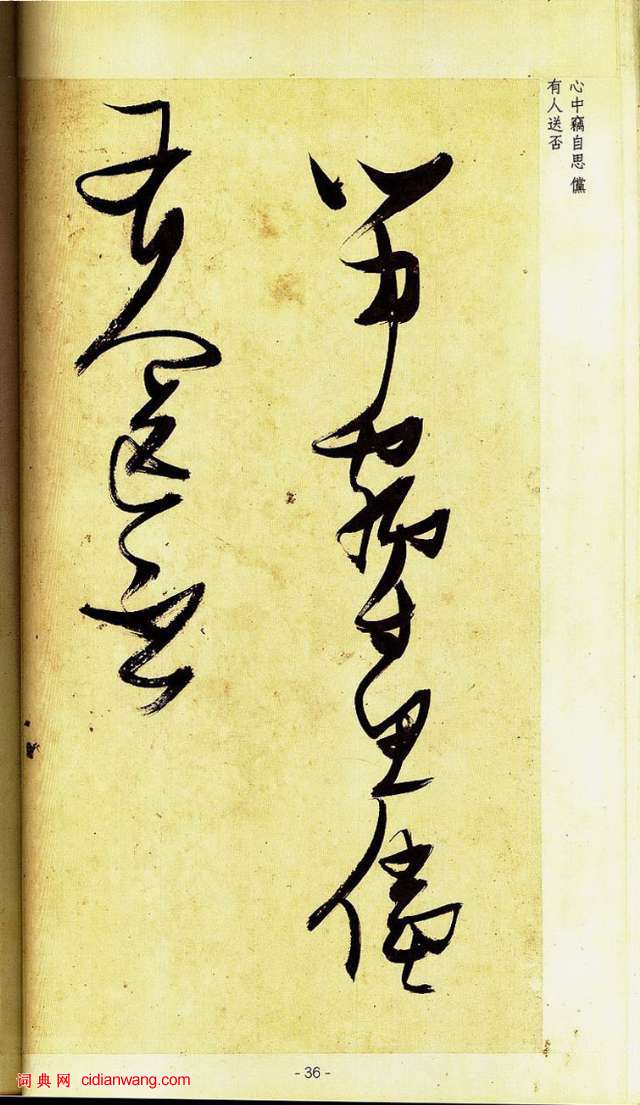 心中竊自思儻
有人送否
心中竊自思 儻
有人送否
- 36 -
词典网 cidianwang.com